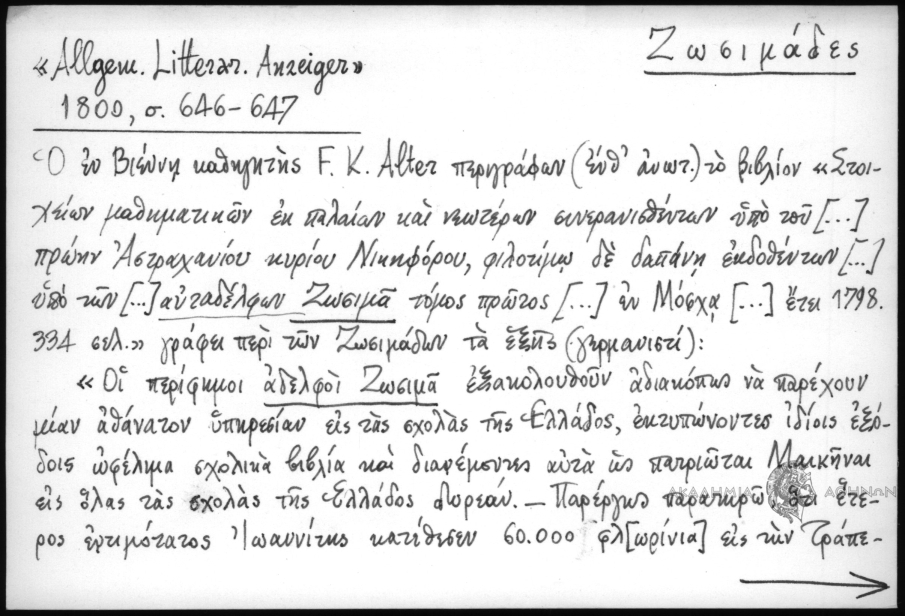 Ζωσιμάδες
«Allgem. Litterar. Anzeiger»
1800, σ. 646–647
Ὁ ἐν Βιέννῃ καθηγητὴς F. K. Alter περιγράφων (ἔνθ' ἀνωτ.) τὸ βιβλίον «Στοι-
χείων μαθηματικῶν ἐκ παλαίων καὶ νεωτέρων συνερανισθέντων ὑπὸ τοῦ [...]
πρώην Ἀστραχανίου κυρίου Νικηφόρου, φιλοτίμῳ δὲ δαπάνῃ ἐκδοθέντων [...]
ὑπὸ τῶν [...] αὐταδέλφων Ζωσιμᾶ τόμος πρῶτος [...] ἐν Μόσχᾳ [...] ἔτει 1798.
334 σελ.» γράφει περὶ τῶν Ζωσιμάδων τὰ ἑξῆς (γερμανιστί):
«Οἱ περίφημοι ἀδελφοὶ Ζωσιμᾶ ἐξακολουθοῦν ἀδιακόπως νὰ παρέχουν
μίαν ἀθάνατον ὑπηρεσίαν εἰς τὰς σχολὰς τῆς Ἑλλάδος, ἐκτυπώνοντες ἰδίοις ἐξό-
δοις ὠφέλιμα σχολικὰ βιβλία καὶ διανέμοντες αὐτὰ ὡς πατριῶται Μαικῆναι
εἰς ὅλας τὰς σχολὰς τῆς Ἑλλάδος δωρεάν. – Παρέργως παρατηρῶ ὅτι ἕτε-
ρος ἐντιμότατος Ἰωαννίτης κατέθεσεν 60.000 φλ[ωρίνια] εἰς τὴν Τράπε-
ΑΚΑΔΗΜΙΑ ΑΘΗΝΩΝ